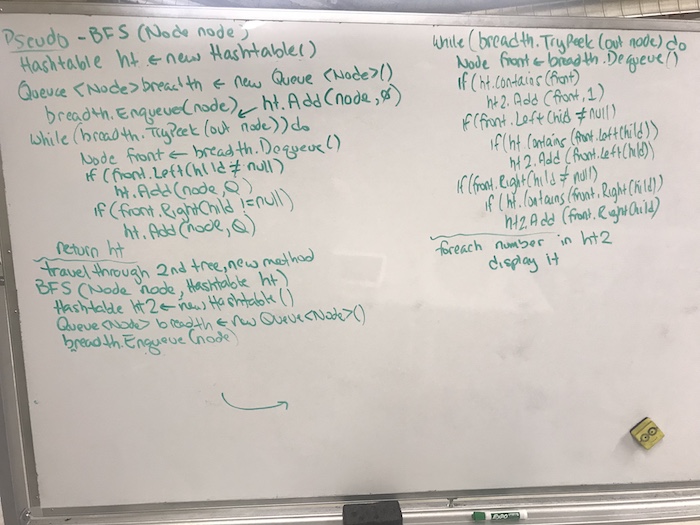 Pseudo - BFS (Node node)
Hashtable ht ← new Hashtable()
Queue <Node> breadth ← new Queue <Node>()
breadth.Enqueue(node) ht.Add(node, 0)
while (breadth.TryPeek (out node)) do
Node front ← breadth.Dequeue()
if (front.LeftChild ≠ null)
ht.Add(node, 0)
if (front.RightChild != null)
ht.Add(node, 0)
return ht
travel through 2nd tree, new method
BFS (Node node, Hashtable ht)
Hashtable ht2 ← new Hashtable()
Queue <Node> breadth ← new Queue <Node>()
breadth.Enqueue (node)
while (breadth.TryPeek (out node) do
Node front ← breadth.Dequeue()
if (ht.contains (front)
ht2.Add (front, 1)
if (front.Left Child ≠ null)
if (ht Contains (front.leftChild))
ht2.Add (front.leftChild))
if (front.RightChild ≠ null)
if (ht.Contains (front.RightChild))
ht2.Add (front.RightChild)
foreach number in ht2
display it
EXPO